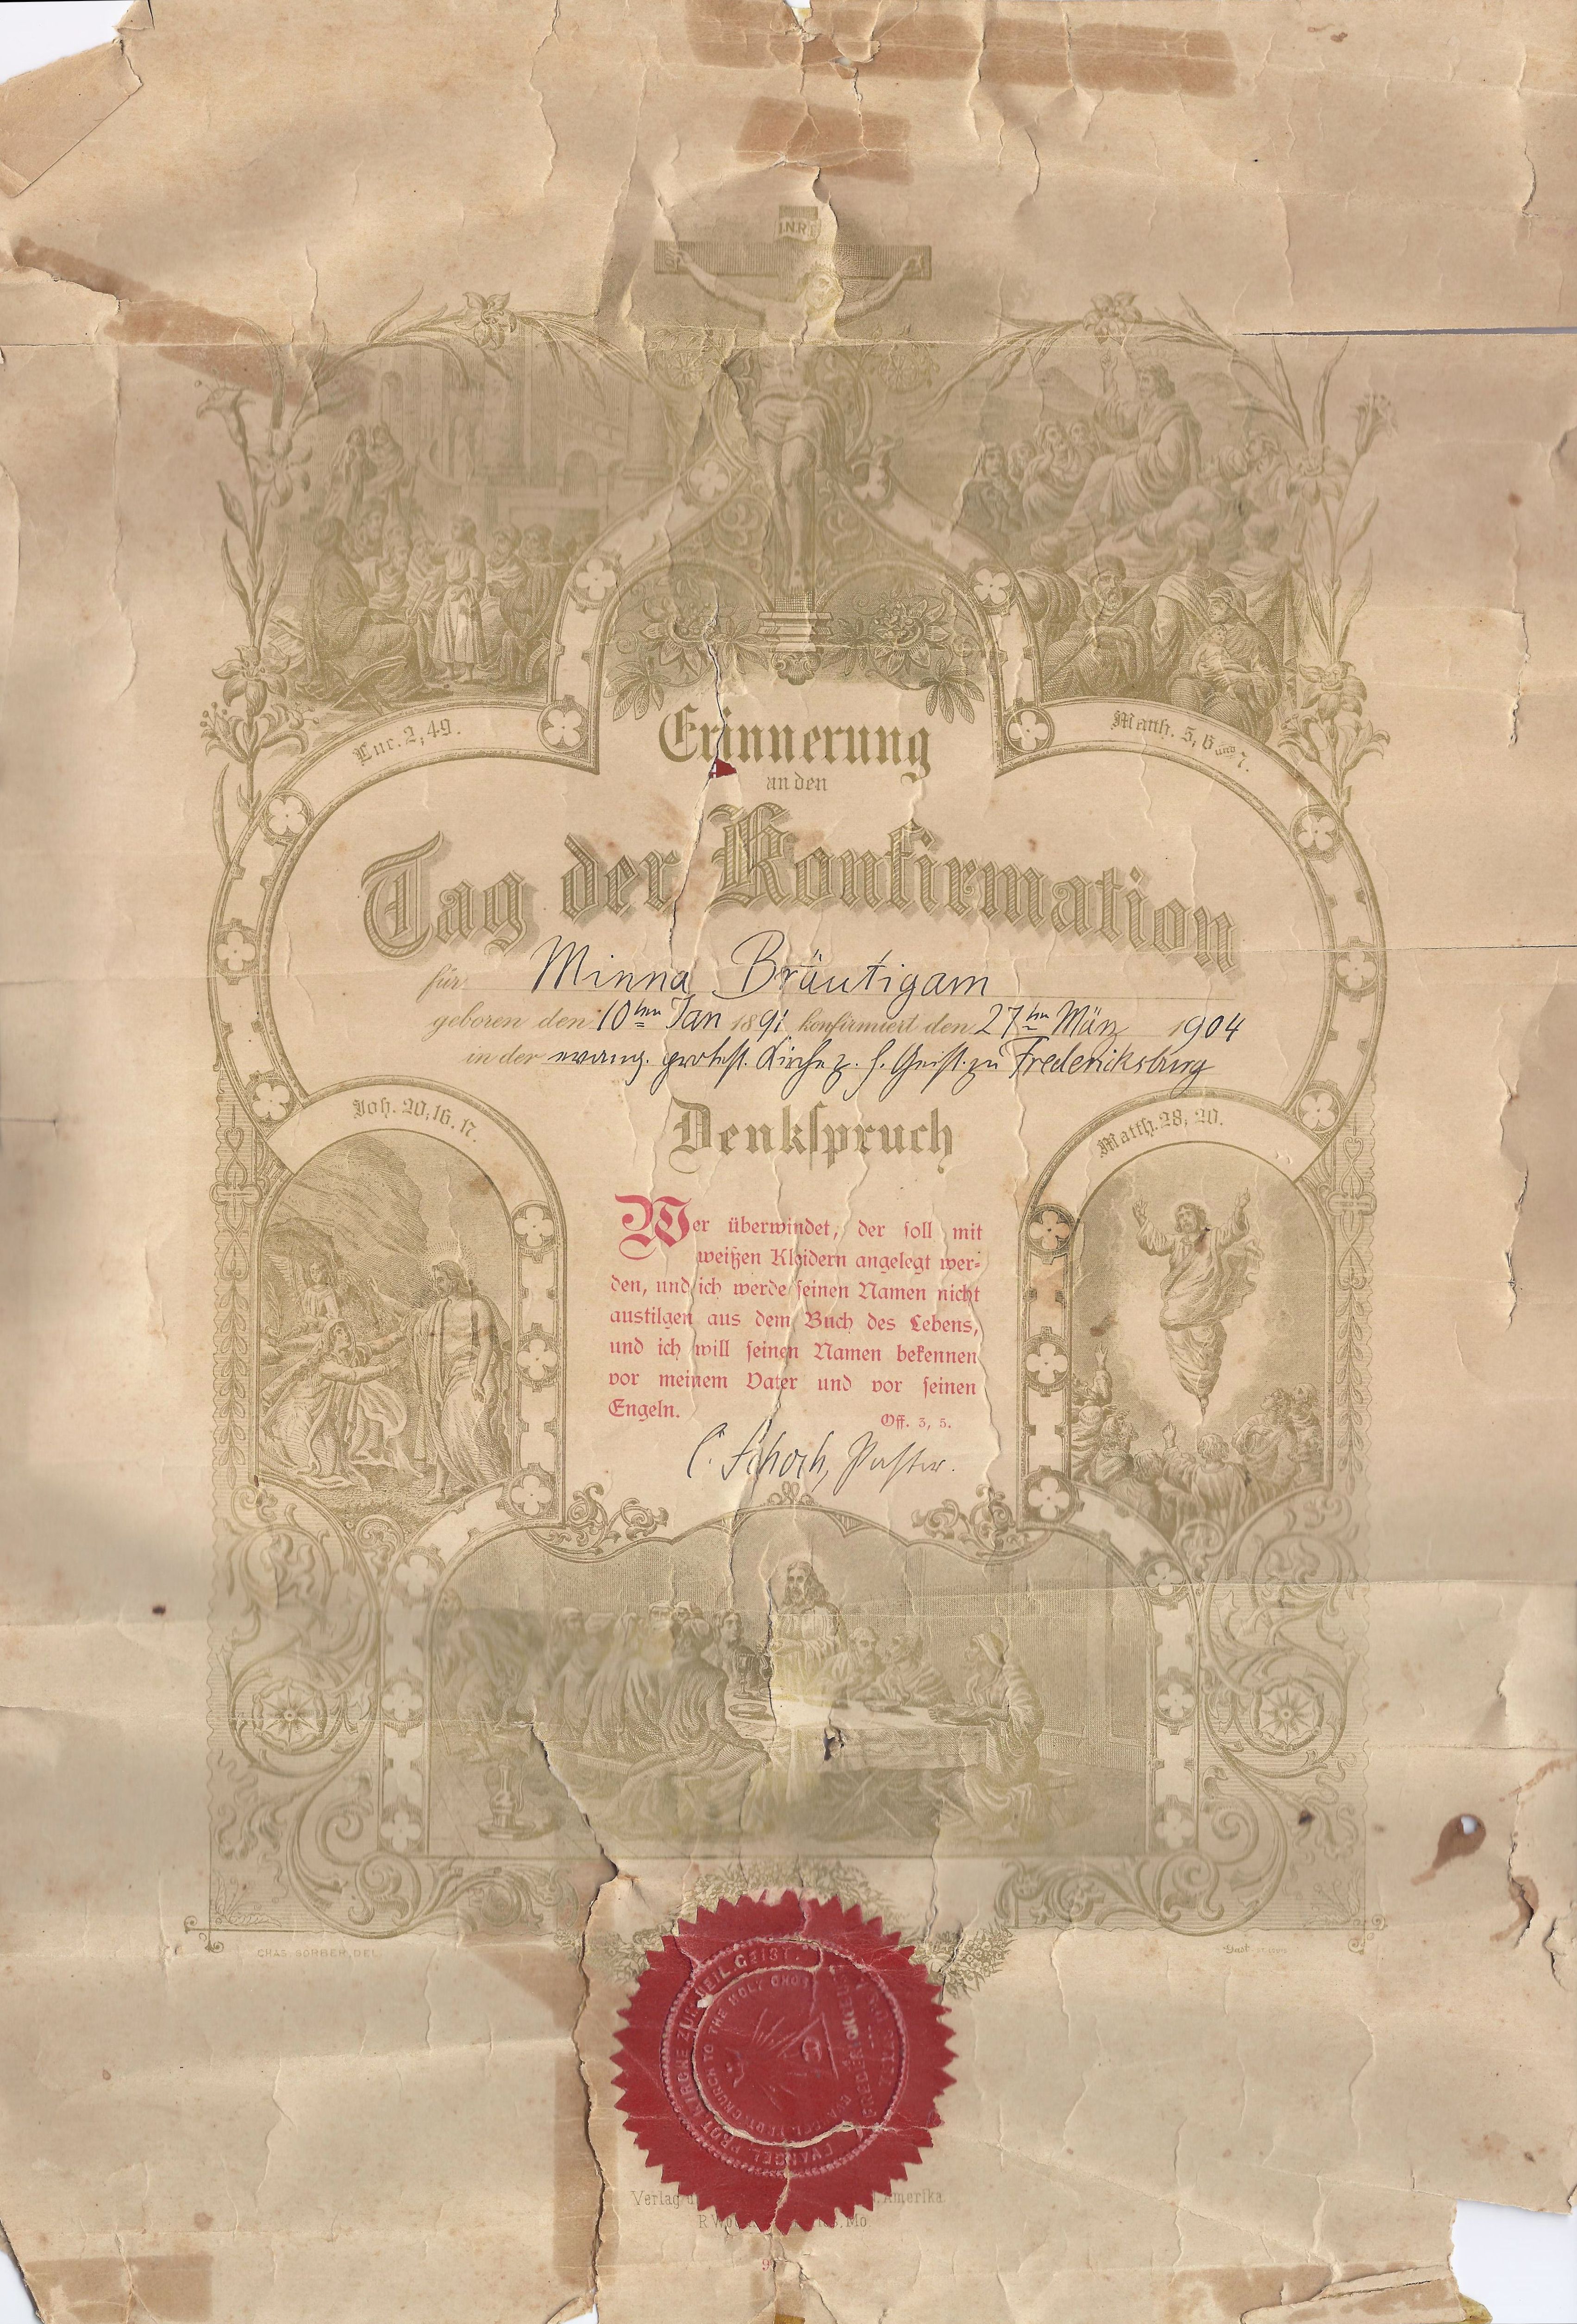 INRI
Luc. 2, 49.
Matth. 5, 6 und 7.
Erinnerung
an den
Tag der Konfirmation
für Minna Bräutigam
geboren den 10ten Jan 1891 konfirmiert den 27ten März 1904
in der evang. protest. Kirche z. h. Geist zu Fredericksburg
Joh. 20, 16. 17.
Matth. 28, 20.
Denkspruch
Wer überwindet, der soll mit
weißen Kleidern angelegt wer-
den, und ich werde seinen Namen nicht
austilgen aus dem Buch des Lebens,
und ich will seinen Namen bekennen
vor meinem Vater und vor seinen
Engeln.
Off. 3, 5.
C. Schoch, Pastor.
CHAS. SORBER, DEL.
Gust
EVANGEL. PROT. KIRCHE ZUM HEIL. GEIST.
CHURCH TO THE HOLY GHOST
FREDERICKSBURG
G
Verlag
Amerika
Mo.
9